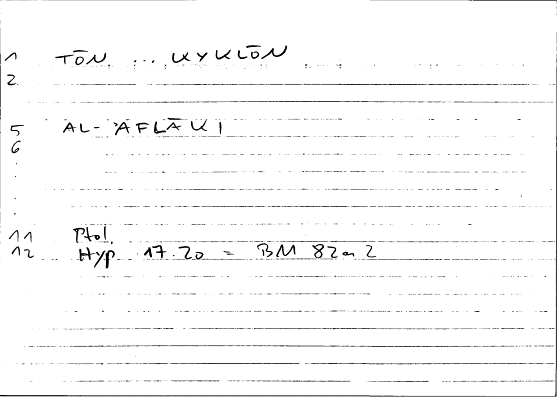 1 TŌN ... KYKLŌN
2
5 AL-'AFLĀKI
6
.
.
.
.
11 Ptol.
12 Hyp. 17.20 = BM 82a2